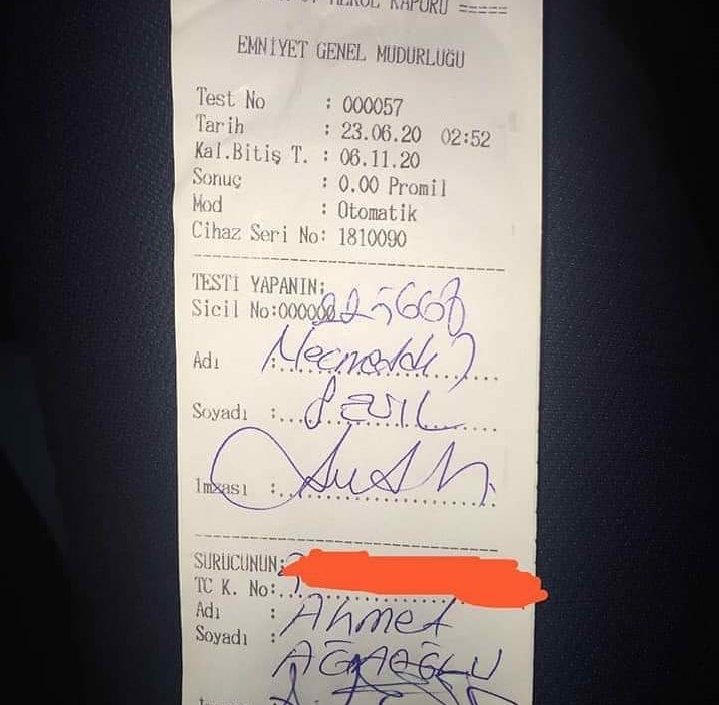 ALKOL RAPORU =====
EMNİYET GENEL MÜDÜRLÜĞÜ
Test No : 000057
Tarih : 23.06.20 02:52
Kal.Bitiş T. : 06.11.20
Sonuç : 0.00 Promil
Mod : Otomatik
Cihaz Seri No: 1810090
TESTİ YAPANIN;
Sicil No:000000
Adı :
Soyadı :
İmzası :
SÜRÜCÜNÜN;
TC K. No:
Adı : Ahmet
Soyadı : AĞAOĞLU